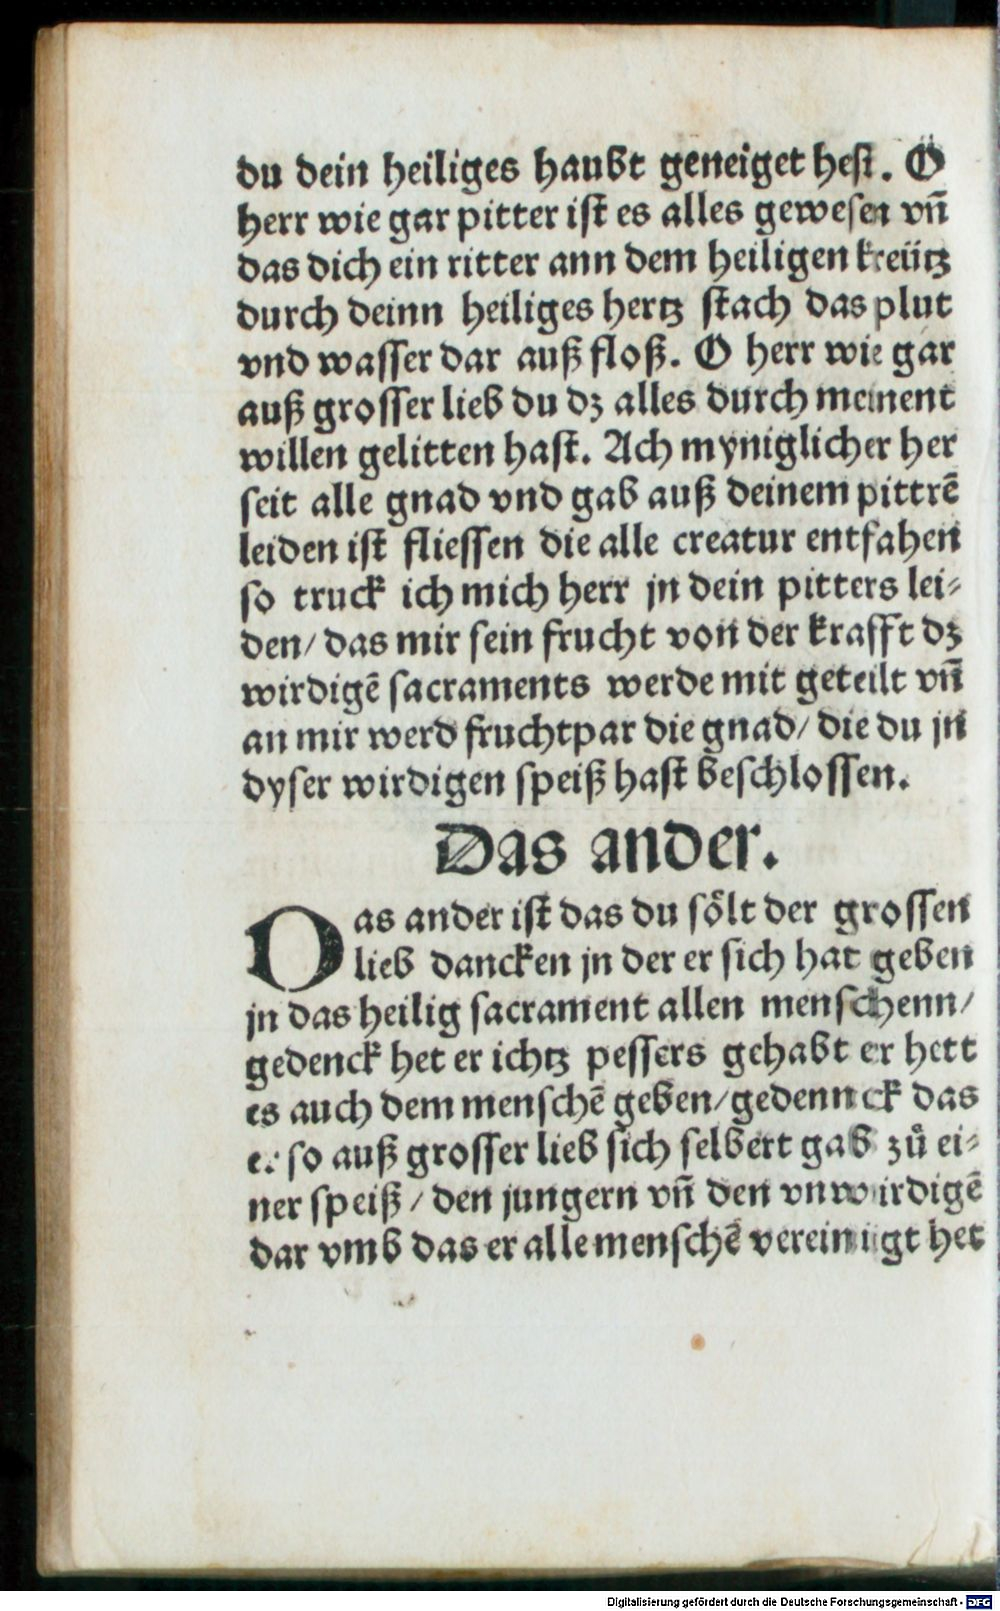 du dein heiliges haubt geneiget hest. O
herr wie gar pitter ist es alles gewesen vn̄
das dich ein ritter ann dem heiligen kreütz
durch deinn heiliges hertz stach das plut
vnd wasser dar auß floß. O herr wie gar
auß grosser lieb du dz alles durch meinent
willen gelitten hast. Ach myniglicher her
seit alle gnad vnd gab auß deinem pittrē
leiden ist fliessen die alle creatur entfahen
so truck ich mich herr jn dein pitters lei⸗
den/ das mir sein frucht von der krafft dz
wirdigē sacraments werde mit geteilt vn̄
an mir werd fruchtpar die gnad/ die du jn
dyser wirdigen speiß hast beschlossen.
Das ander.
Das ander ist das du sölt der grossen
lieb dancken jn der er sich hat geben
jn das heilig sacrament allen menschenn/
gedenck het er ichtz pessers gehabt er hett
es auch dem menschē geben/gedennck das
er so auß grosser lieb sich selbert gab zů ei⸗
ner speiß/ den jungern vn̄ den vnwirdigē
dar vmb das er alle menschē vereinigt het
Digitalisierung gefördert durch die Deutsche Forschungsgemeinschaft - DFG